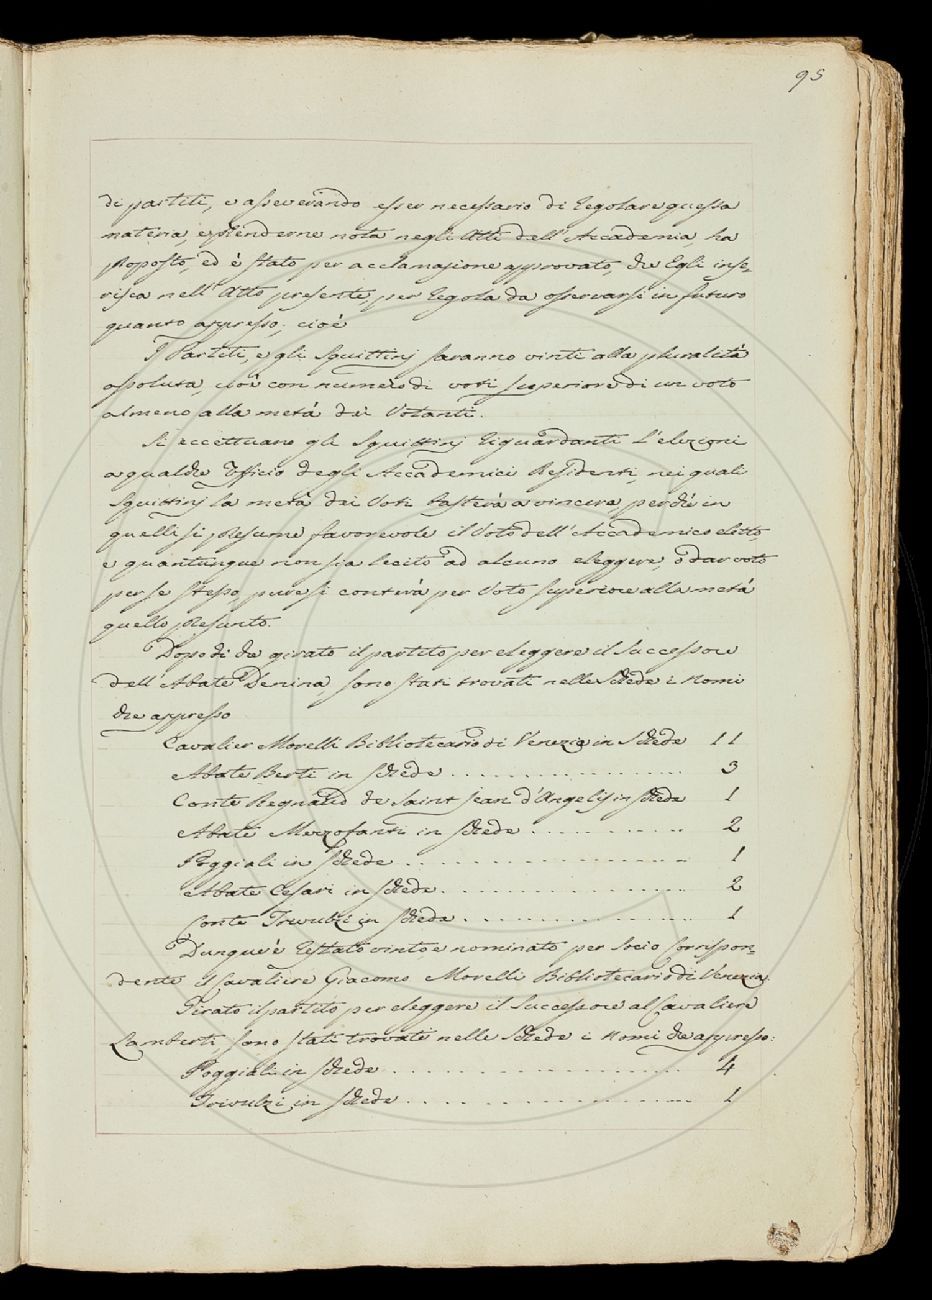 95
di partiti, e asseverando esser necessario di Regolare questa
materia, e prenderne nota negli Atti dell'Accademia, ha
proposto, ed è stato per acclamazione approvato, che Egli inse-
risca nell'Atto presente, per Regola da osservarsi in futuro
quanto appresso; cioè
I Partiti, e gli Squittinj saranno vinti alla pluralità
assoluta, cioè con numero di voti superiore di un voto
almeno alla metà dei Votanti.
Si eccettuano gli Squittinj Riguardanti l'elezioni
a qualche Ufficio degli Accademici Residenti, nei quali
Squittinj la metà dei Voti basterà a vincere, perché in
quelli si presume favorevole il Voto dell'Accademico eletto,
e quantunque non sia lecito ad alcuno eleggere, ò dar voto
per se stesso, pure si conterà per Voto superiore alla metà
quello presunto.
Dopo di che girato il partito per eleggere il Successore
dell'Abate Denina, sono stati trovati nelle Schede i Nomi
che appresso
Cavalier Morelli Bibliotecario di Venezia in Schede 11
Abate Berti in schede 3
Conte Regnaud de Saint Jean d'Angelis in scheda 1
Abate Mezzofanti in schede 2
Poggiali in Schede 1
Abate Cesari in schede 2
Conte Trivulzi in scheda 1
Dunque è Restato vinto e nominato per Socio Corrispon-
dente il Cavaliere Giacomo Morelli Bibliotecario di Venezia.
Girato il partito per eleggere il Successore al Cavaliere
Lamberti, sono stati trovati nelle Schede i Nomi che appresso:
Poggiali in schede 4
Trivulzi in schede 1